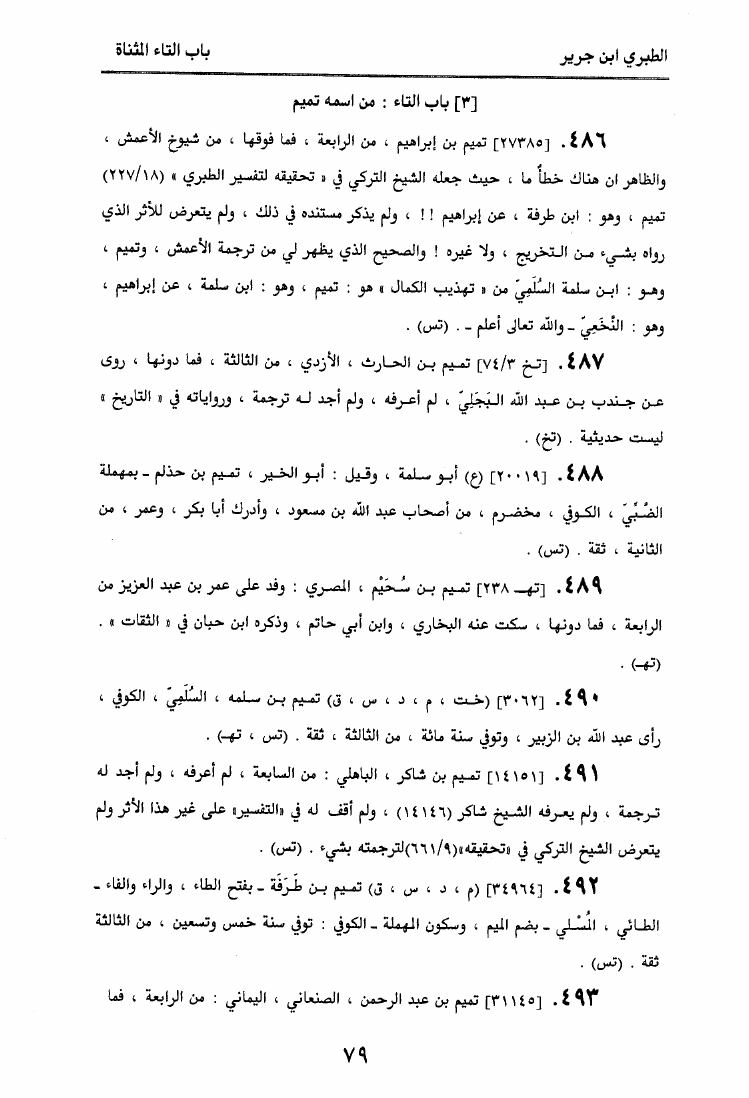 الطبري ابن جرير
باب التاء المثناة
[٣] باب التاء : من اسمه تميم
٤٨٦. [٢٧٣٨٥] تميم بن إبراهيم ، من الرابعة ، فما فوقها ، من شيوخ الأعمش ،
والظاهر ان هناك خطأً ما ، حيث جعله الشيخ التركي في « تحقيقه لتفسير الطبري » (٢٢٧/١٨)
تميم ، وهو : ابن طرفة ، عن إبراهيم !! ، ولم يذكر مستنده في ذلك ، ولم يتعرض للأثر الذي
رواه بشيء من التخريج ، ولا غيره ! والصحيح الذي يظهر لي من ترجمة الأعمش ، وتميم ،
وهو : ابن سلمة السُلَمِيّ من « تهذيب الكمال » هو : تميم ، وهو : ابن سلمة ، عن إبراهيم ،
وهو : النْخَعِيّ – والله تعالى أعلم –. (تس) .
٤٨٧. [تخ ٧٤/٣] تميم بن الحارث ، الأزدي ، من الثالثة ، فما دونها ، روى
عن جندب بن عبد الله البَجَلِيّ ، لم أعرفه ، ولم أجد له ترجمة ، ورواياته في « التاريخ »
ليست حديثية . (تخ) .
٤٨٨. [٢٠٠١٩] (ع) أبو سلمة ، وقيل : أبو الخير ، تميم بن حذلم – بمهملة
الضُبِّيّ ، الكوفي ، مخضرم ، من أصحاب عبد الله بن مسعود ، وأدرك أبا بكر ، وعمر ، من
الثانية ، ثقة . (تس) .
٤٨٩. [تهـ ٢٣٨] تميم بن سُحَيْم ، المصري : وفد على عمر بن عبد العزيز من
الرابعة ، فما دونها ، سكت عنه البخاري ، وابن أبي حاتم ، وذكره ابن حبان في « الثقات » .
(تهـ) .
٤٩٠. [٣٠٦٢] (خت ، م ، د ، س ، ق) تميم بن سلمه ، السُلَمِيّ ، الكوفي ،
رأى عبد الله بن الزبير ، وتوفي سنة مائة ، من الثالثة ، ثقة . (تس ، تهـ) .
٤٩١. [١٤١٥١] تميم بن شاكر ، الباهلي : من السابعة ، لم أعرفه ، ولم أجد له
ترجمة ، ولم يعرفه الشيخ شاكر (١٤١٤٦) ، ولم أقف له في «التفسير» على غير هذا الأثر ولم
يتعرض الشيخ التركي في «تحقيقه»(٦٦١/٩)لترجمته بشيء . (تس) .
٤٩٢. [٣٤٩٦٤] (م ، د ، س ، ق) تميم بن طَرَفَة – بفتح الطاء ، والراء والفاء –
الطائي ، المُسْلي – بضم الميم ، وسكون المهملة – الكوفي : توفي سنة خمس وتسعين ، من الثالثة
ثقة . (تس) .
٤٩٣. [٣١١٤٥] تميم بن عبد الرحمن ، الصنعاني ، اليماني : من الرابعة ، فما
٧٩